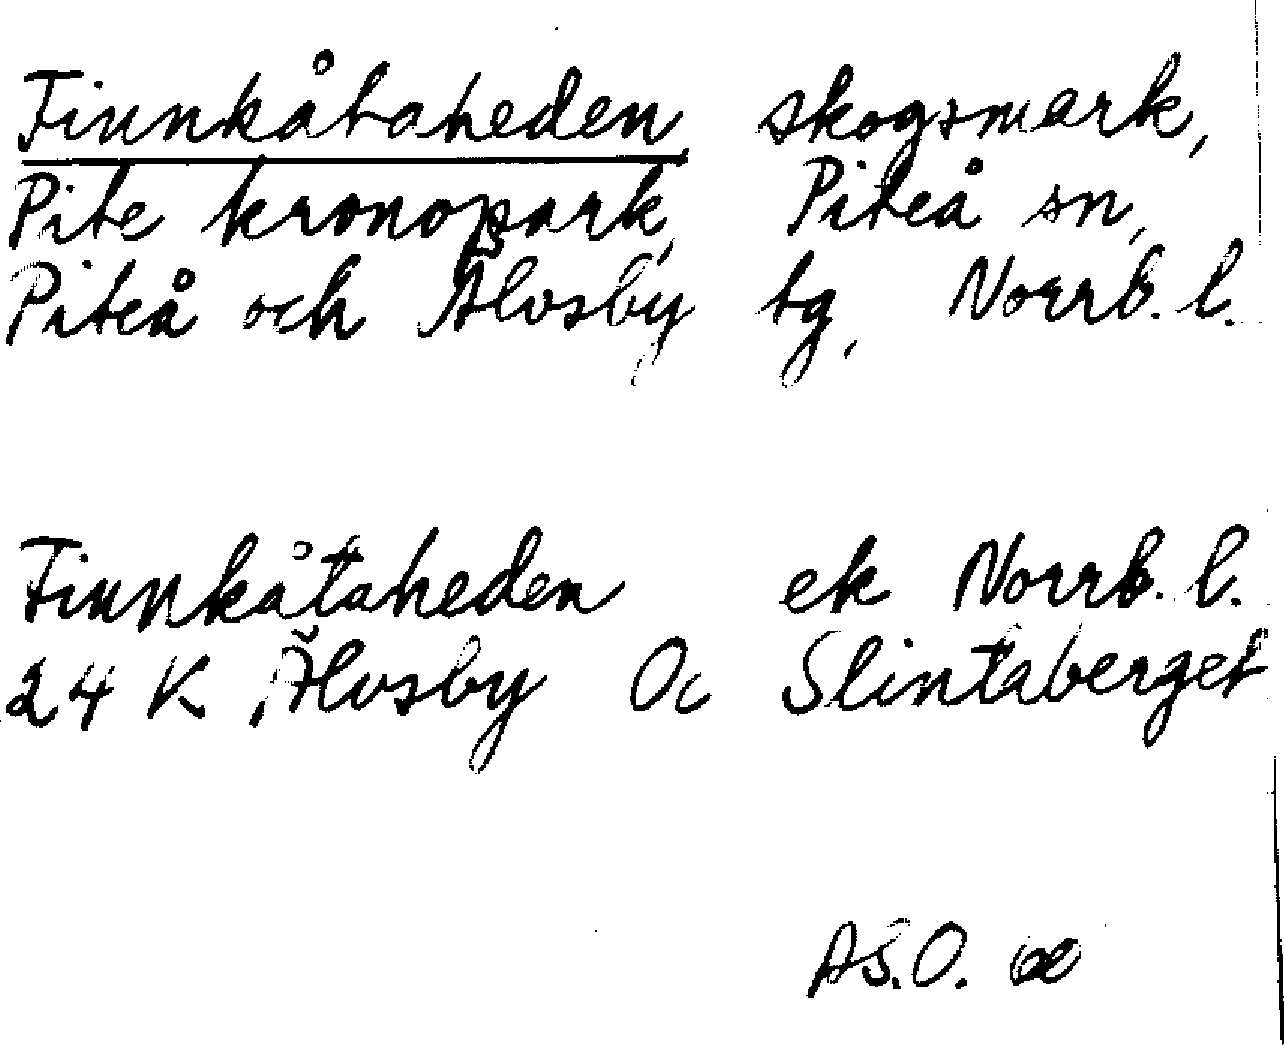 Finnkåtaheden, skogsmark,
Pite kronopark, Piteå sn,
Piteå och Älvsby tg, Norrb. l.
Finnkåtaheden ek Norrb. l.
24 K, Älvsby Oc Slintaberget